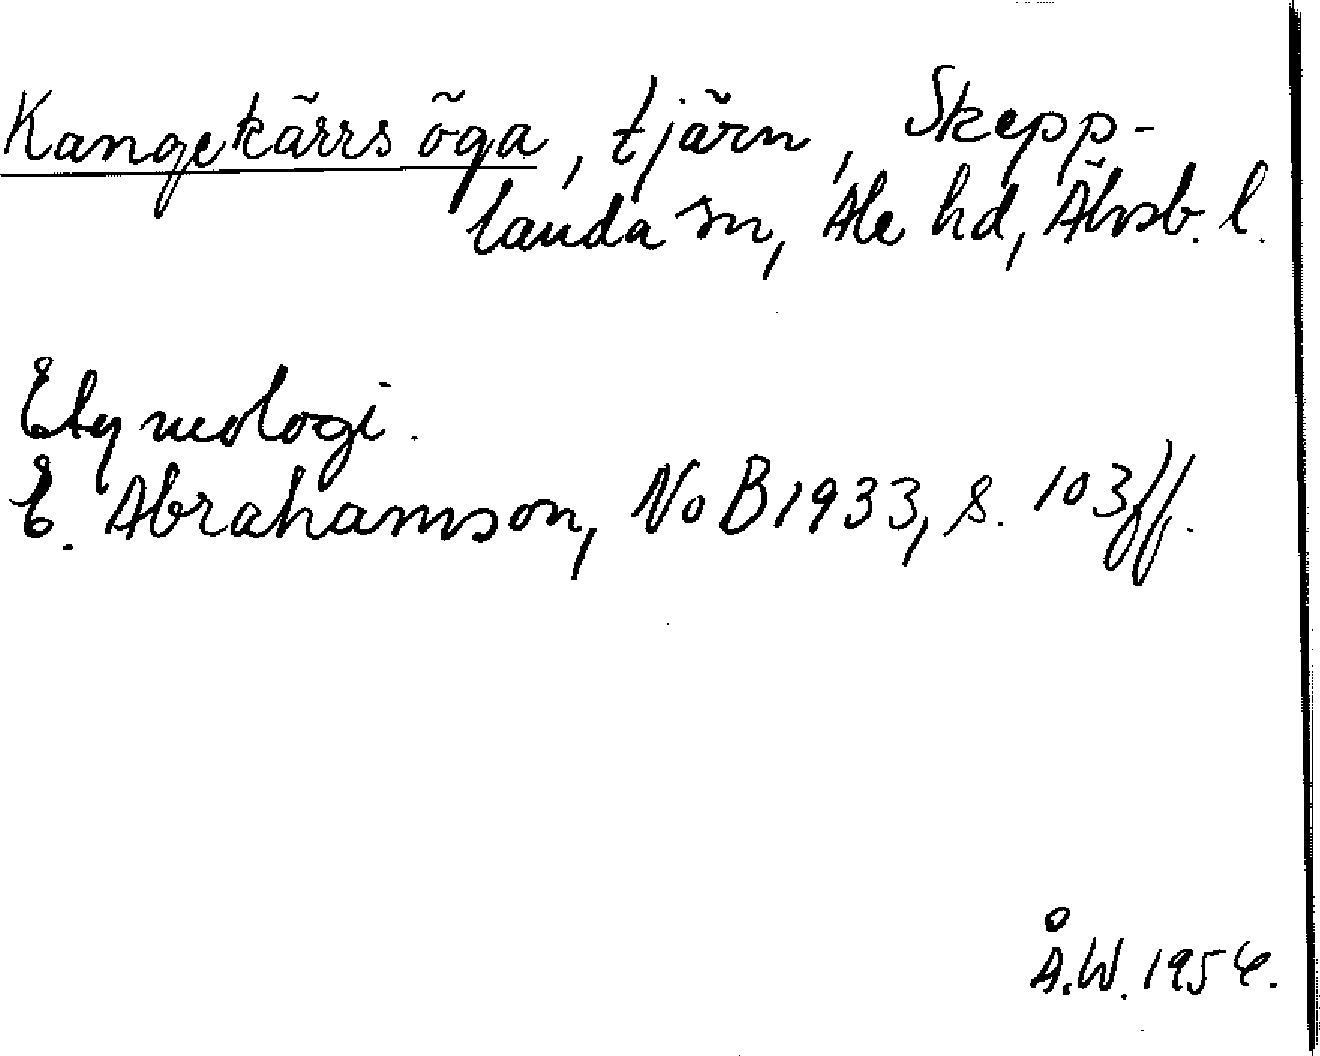 Kangekärrs öga, tjärn, Skepp-
landa sn, Ale hd, Älvsb. l.
Etymologi.
E. Abrahamson, NoB 1933, s. 103 ff.
Å.W. 1954.